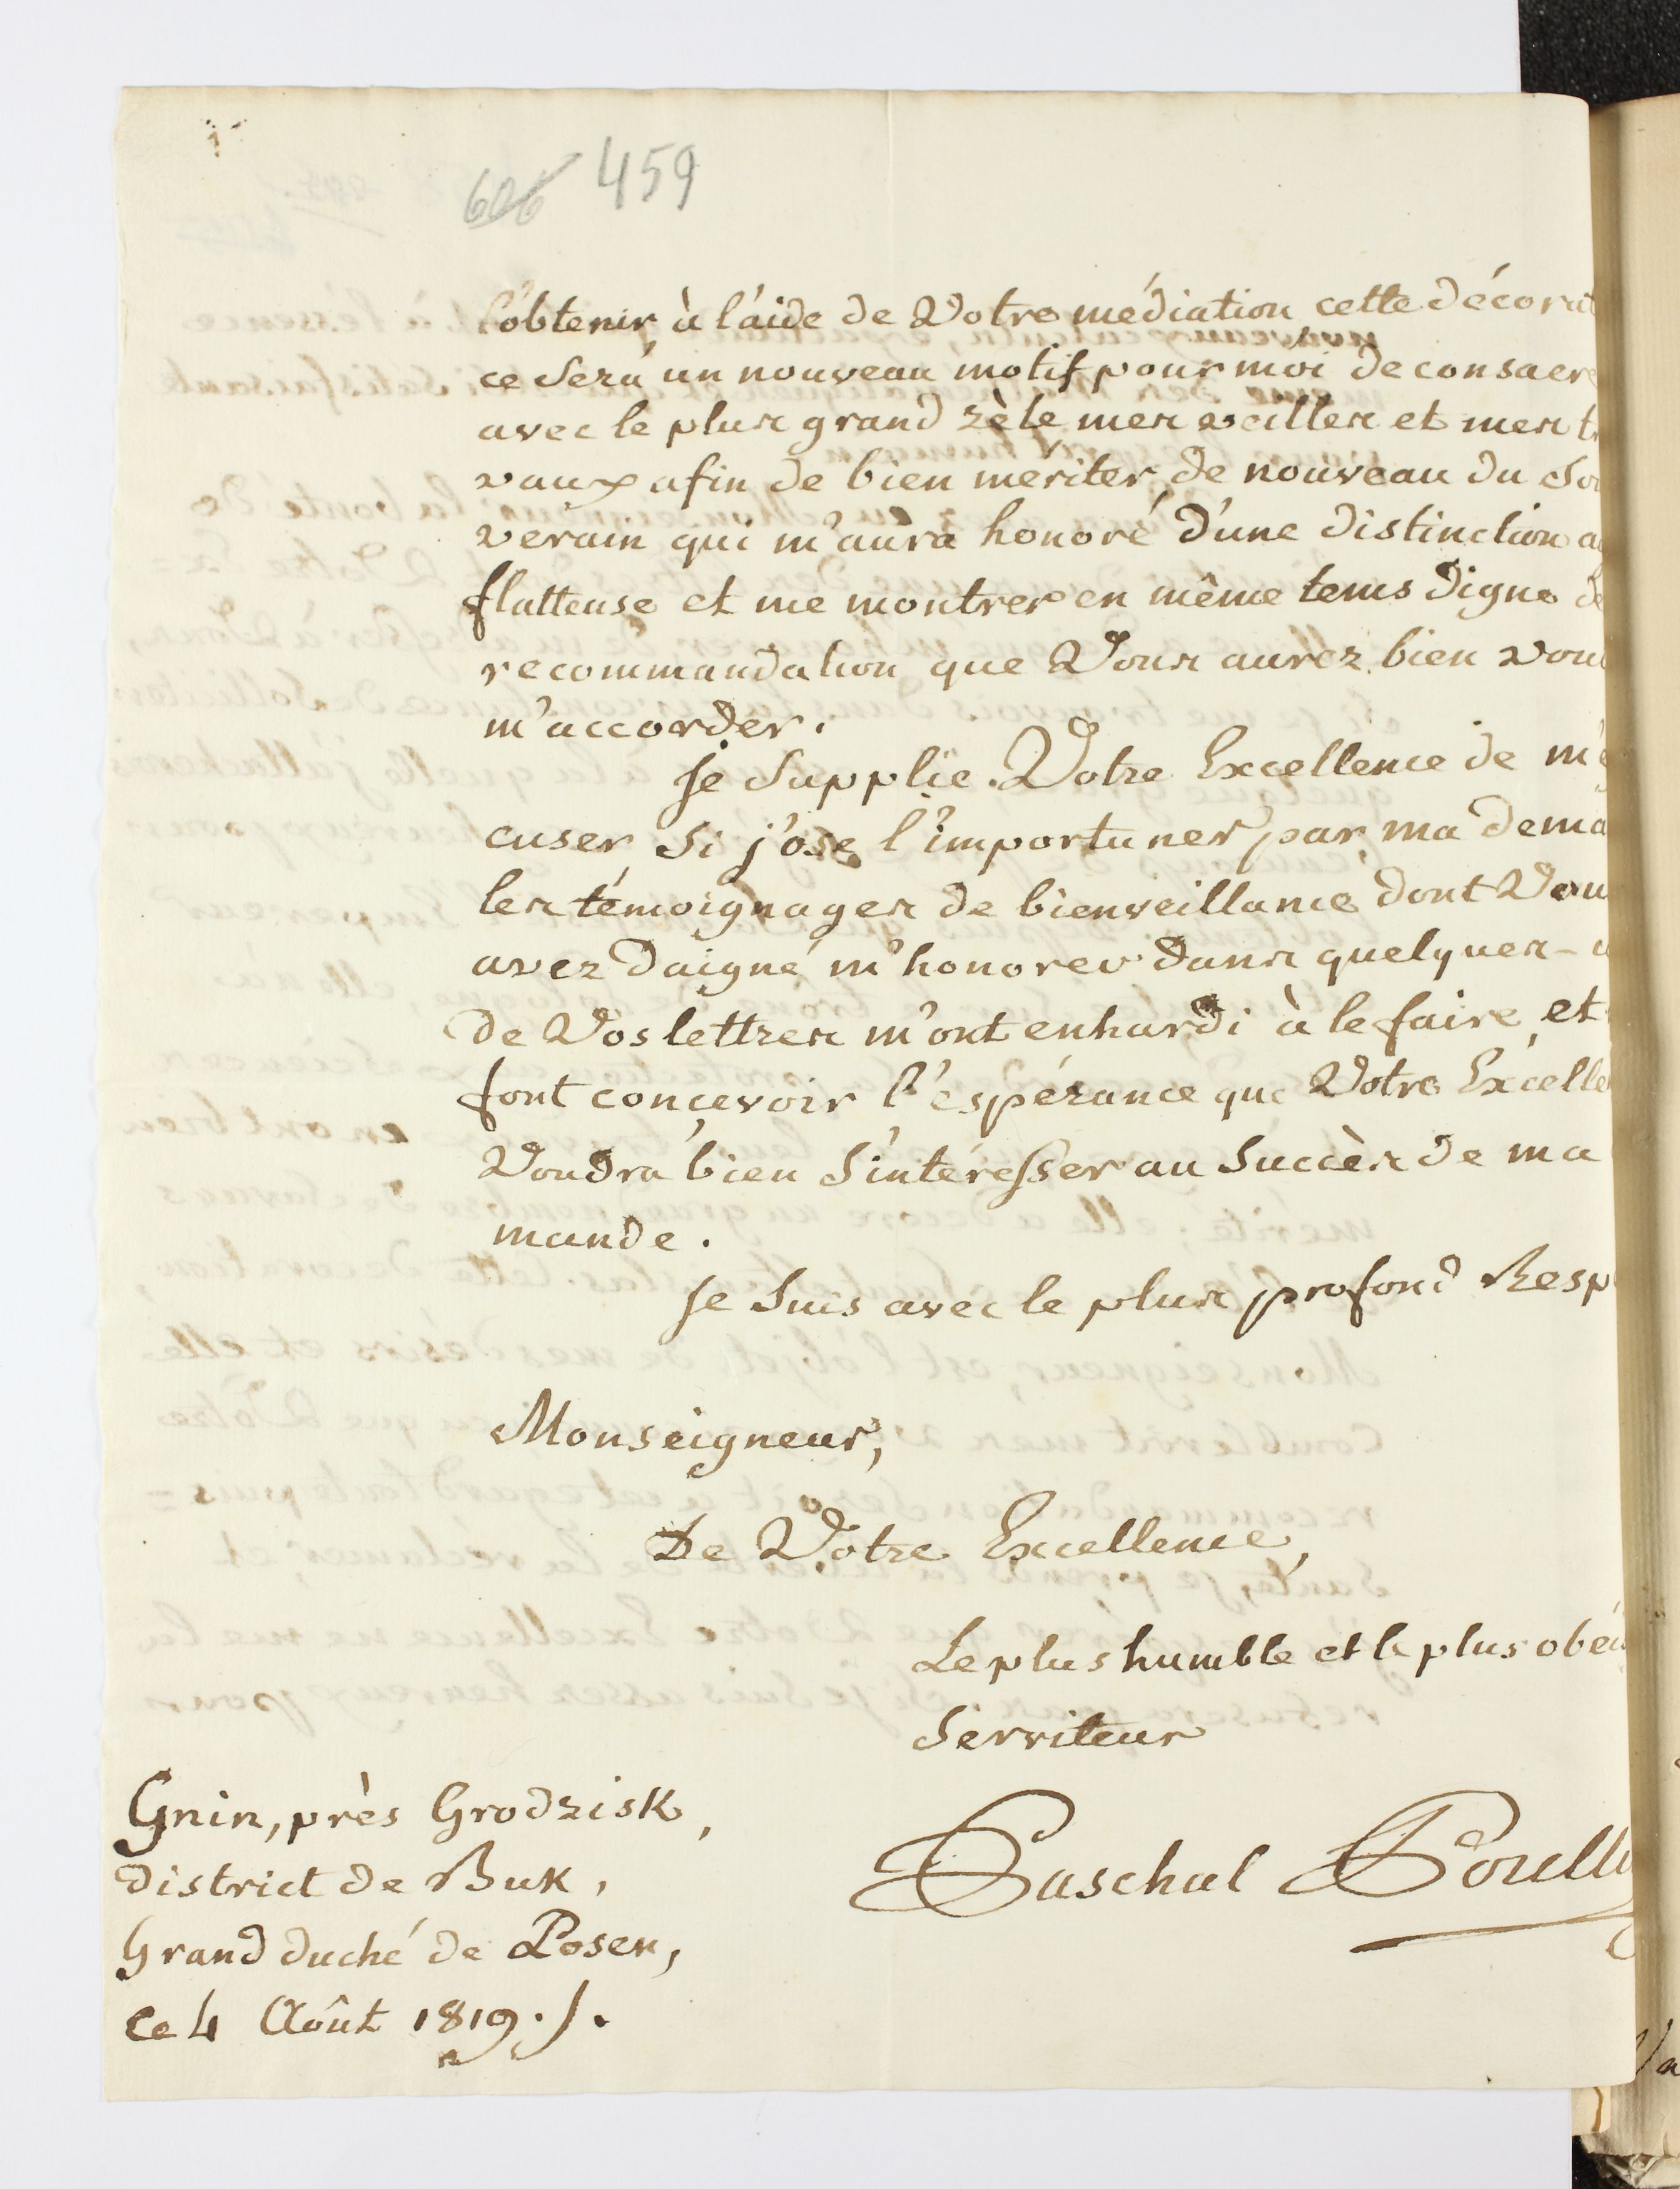 606 459
l'obtenir, à l'aide de Votre médiation cette décorat
ce Sera un nouveau motif pour moi de consacre
avec le plus grand zèle mes veilles et mes tr
vaux afin de bien meriter de nouveau du Sou
verain qui m'aura honoré d'une distinction au
flatteuse et me montrer en même tems digne de
recommandation que Vous aurez bien voul
m'accorder.
Je Supplie Votre Excellence de m'e
cuser Si j'ose l'importuner par ma dema
les témoignages de bienveillance dont Vou
avez daigné m'honorer dans quelques-u
de Vos lettres m'ont enhardi à le faire, et
font concevoir l'espérance que Votre Excelle
Voudra bien S'intéresser au Succès de ma
mande.
Je Suis avec le plus profond Resp
Monseigneur,
De Votre Excellence,
Le plus humble et le plus obéi
Serviteur
Paschal
Gnin, près Grodzisk,
district de Buk,
Grand duché de Posen,
ce 4 Août 1819./.